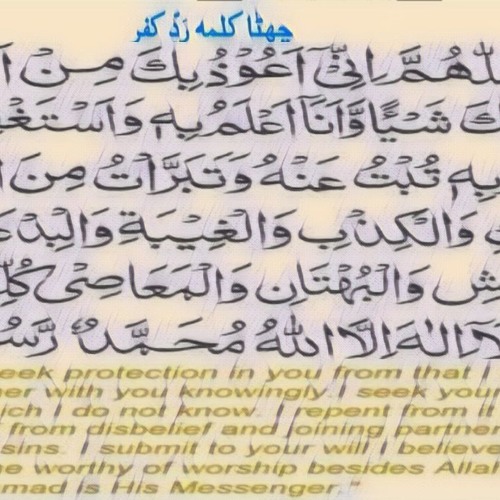 چھٹا کلمہ رَدِّ کفر
اَللّٰهُمَّ اِنِّیْٓ اَعُوْذُ بِكَ مِنْ
شَیْئًا وَّاَنَا اَعْلَمُ بِهٖ وَاَسْتَغْ
بِهٖ تُبْتُ عَنْهُ وَتَبَرَّأْتُ مِنَ
وَالْكِذْبِ وَالْغِیْبَةِ وَالْبِدْعَ
وَالْبُهْتَانِ وَالْمَعَاصِیْ كُلِّ
لَاۤ اِلٰهَ اِلَّا اللّٰهُ مُحَمَّدٌ رَّسُ
eek protection in you from that I
er with you knowingly. I seek your
ich I do not know. I repent from it
from disbelief and joining partner
sins. I submit to your will I believe
e worthy of worship besides Alla
mad is His Messenger."